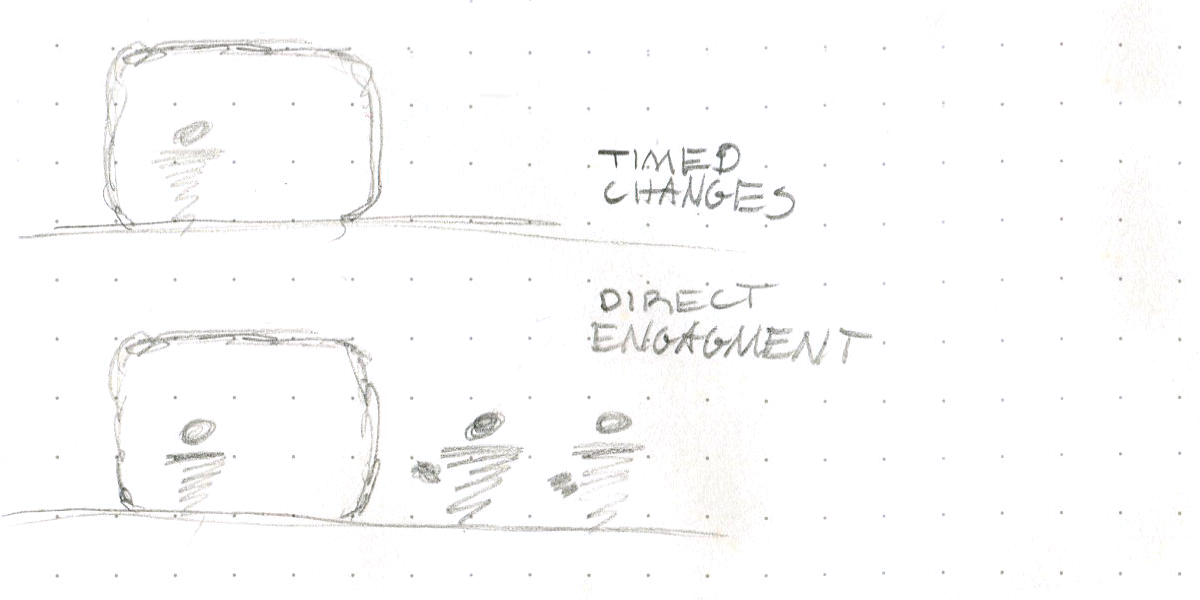 TIMED
CHANGES
DIRECT
ENGAGMENT